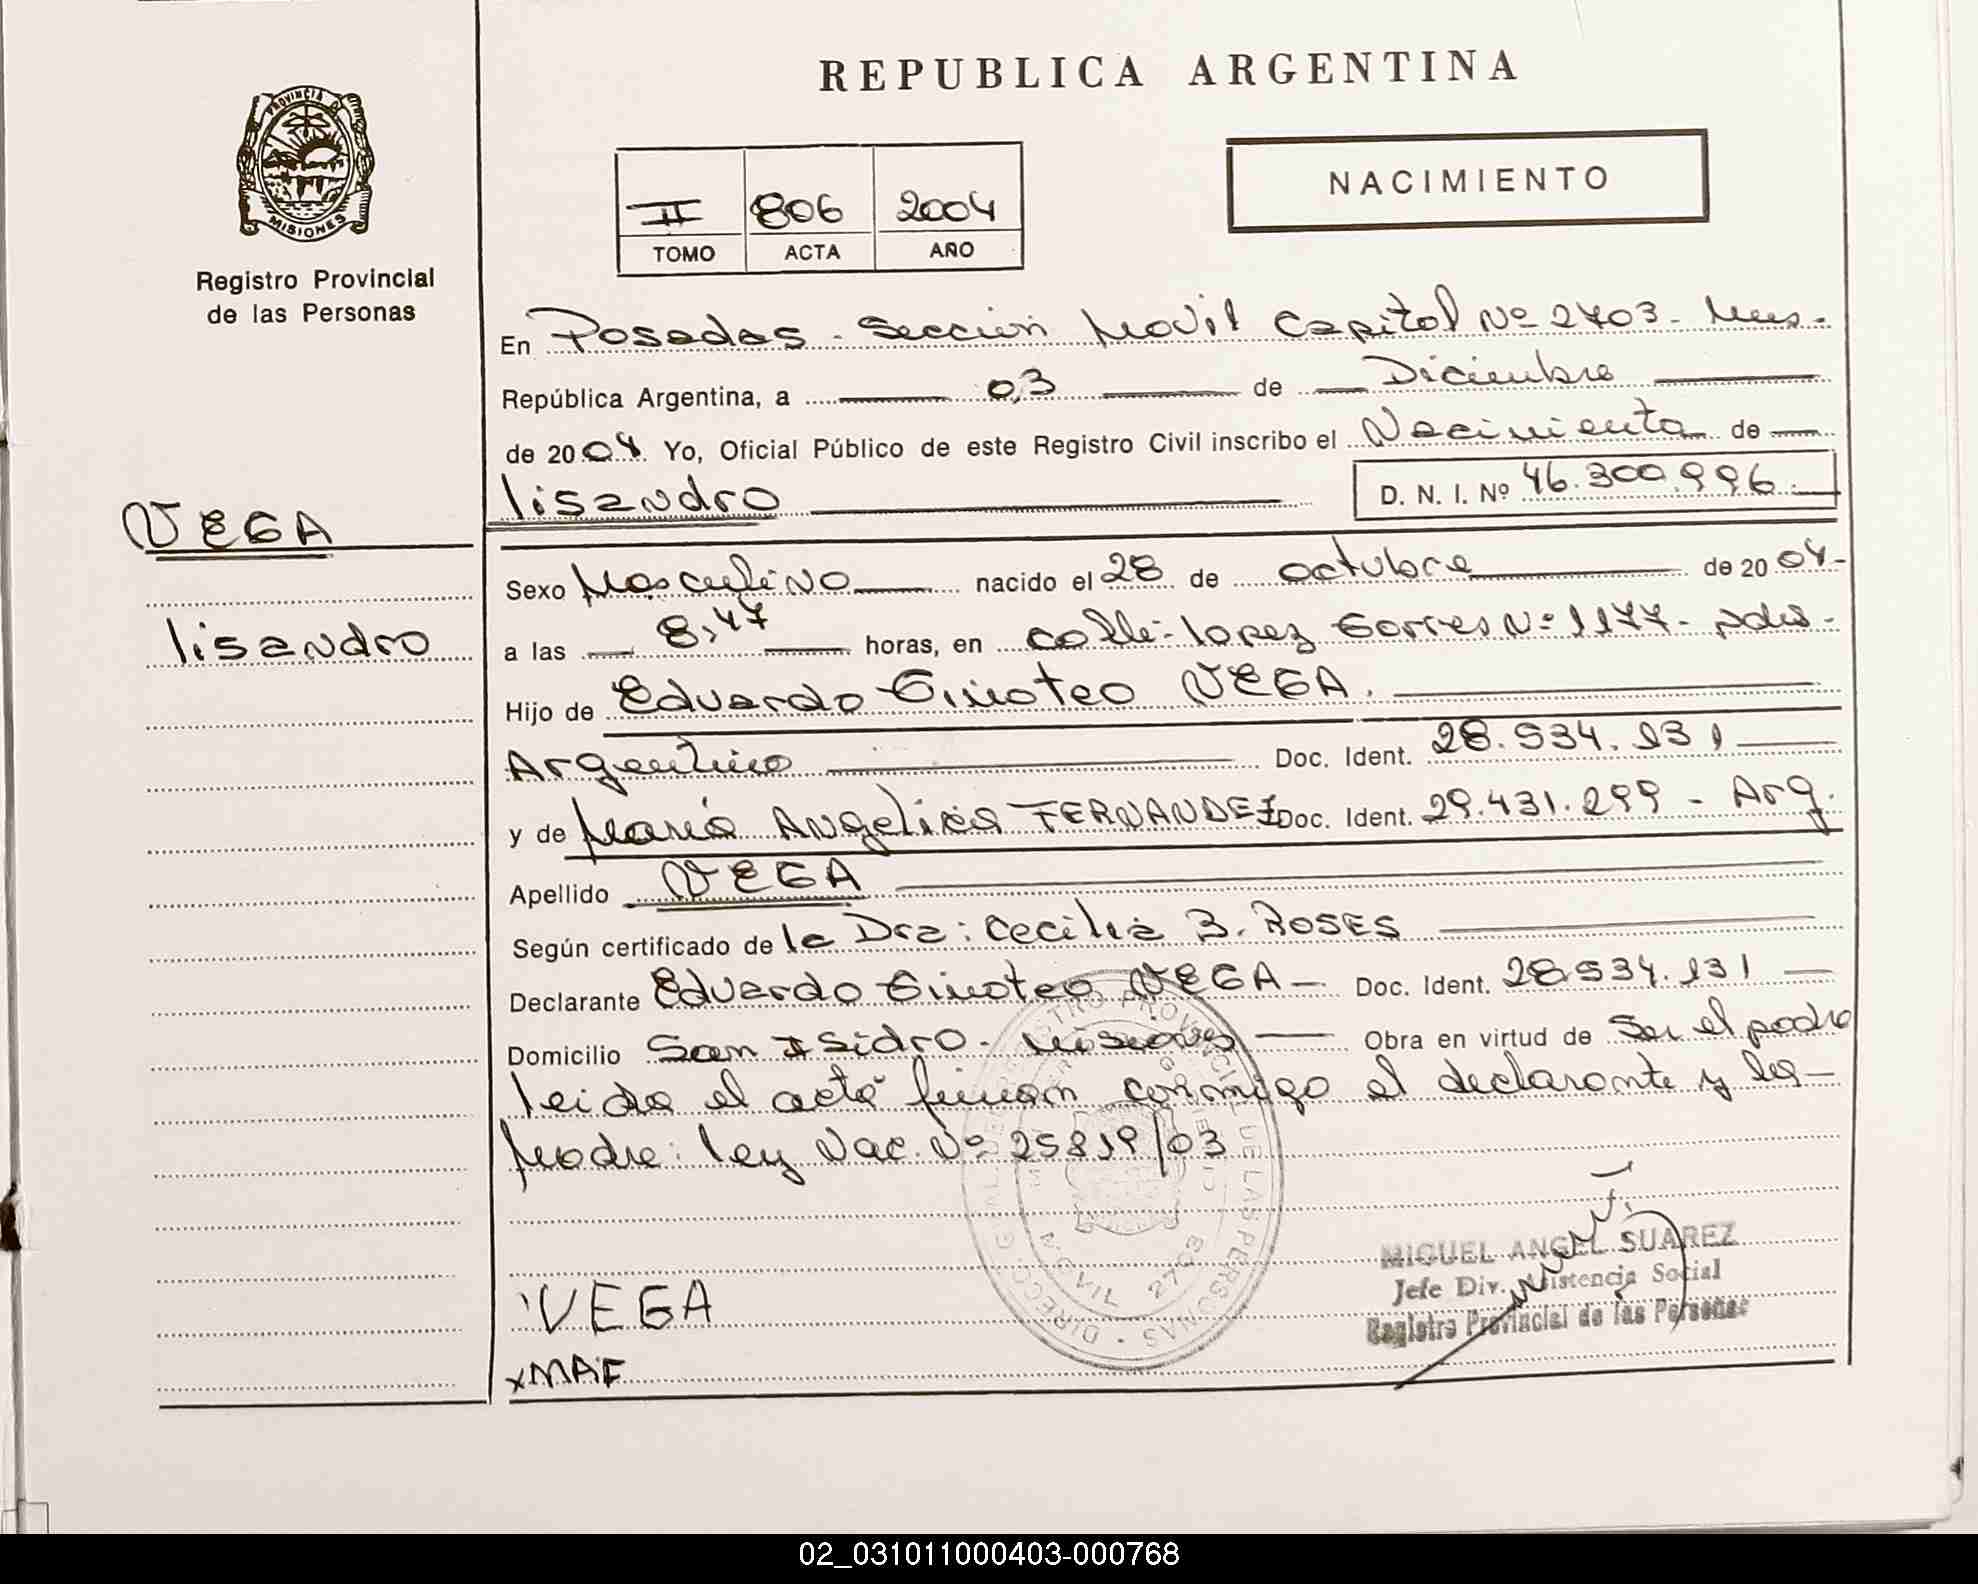 REPUBLICA ARGENTINA
PROVINCIA DE
MISIONES
Registro Provincial
de las Personas
II 806 2004
TOMO ACTA AÑO
NACIMIENTO
En Posadas - Sección Movil Capital Nº 2703 - Mnes.
República Argentina, a 03 de Diciembre
de 2004 Yo, Oficial Público de este Registro Civil inscribo el Nacimiento de
lisandro D. N. I. Nº 46.300.996
VEGA
lisandro
Sexo Masculino nacido el 28 de octubre de 2004-
a las 8,47 horas, en calle: lopez Torres Nº 1177 - pdas.
Hijo de Eduardo Timoteo VEGA.
Argentino Doc. Ident. 28.534.131
y de María Angelica FERNANDEZ Doc. Ident. 29.431.299 - Arg.
Apellido VEGA
Según certificado de la Dra: Cecilia B. ROSES
Declarante Eduardo Timoteo VEGA - Doc. Ident. 28.534.131
Domicilio San Isidro - Misiones Obra en virtud de Ser el padre
leida el acta firman conmigo el declarante y la -
Madre: ley Nac. Nº 25819/03
MOVIL 2703
MIGUEL ANGEL SUAREZ
Jefe Div. Asistencia Social
Registro Provincial de las Personas
VEGA
xMAF
02_031011000403-000768